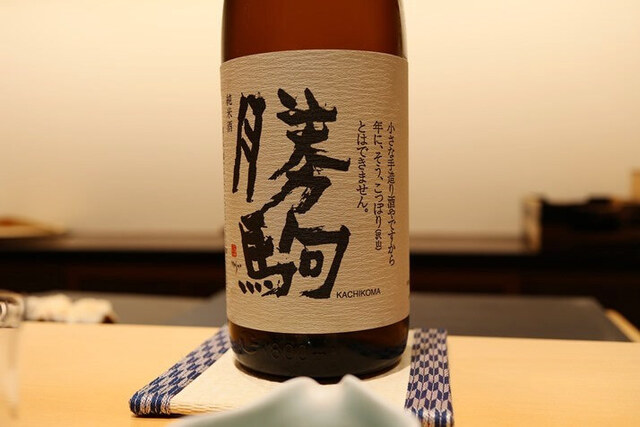 小さな手造り酒やですから
年に、そう、こっぽり
とはできません。
勝駒
純米酒
KACHIKOMA